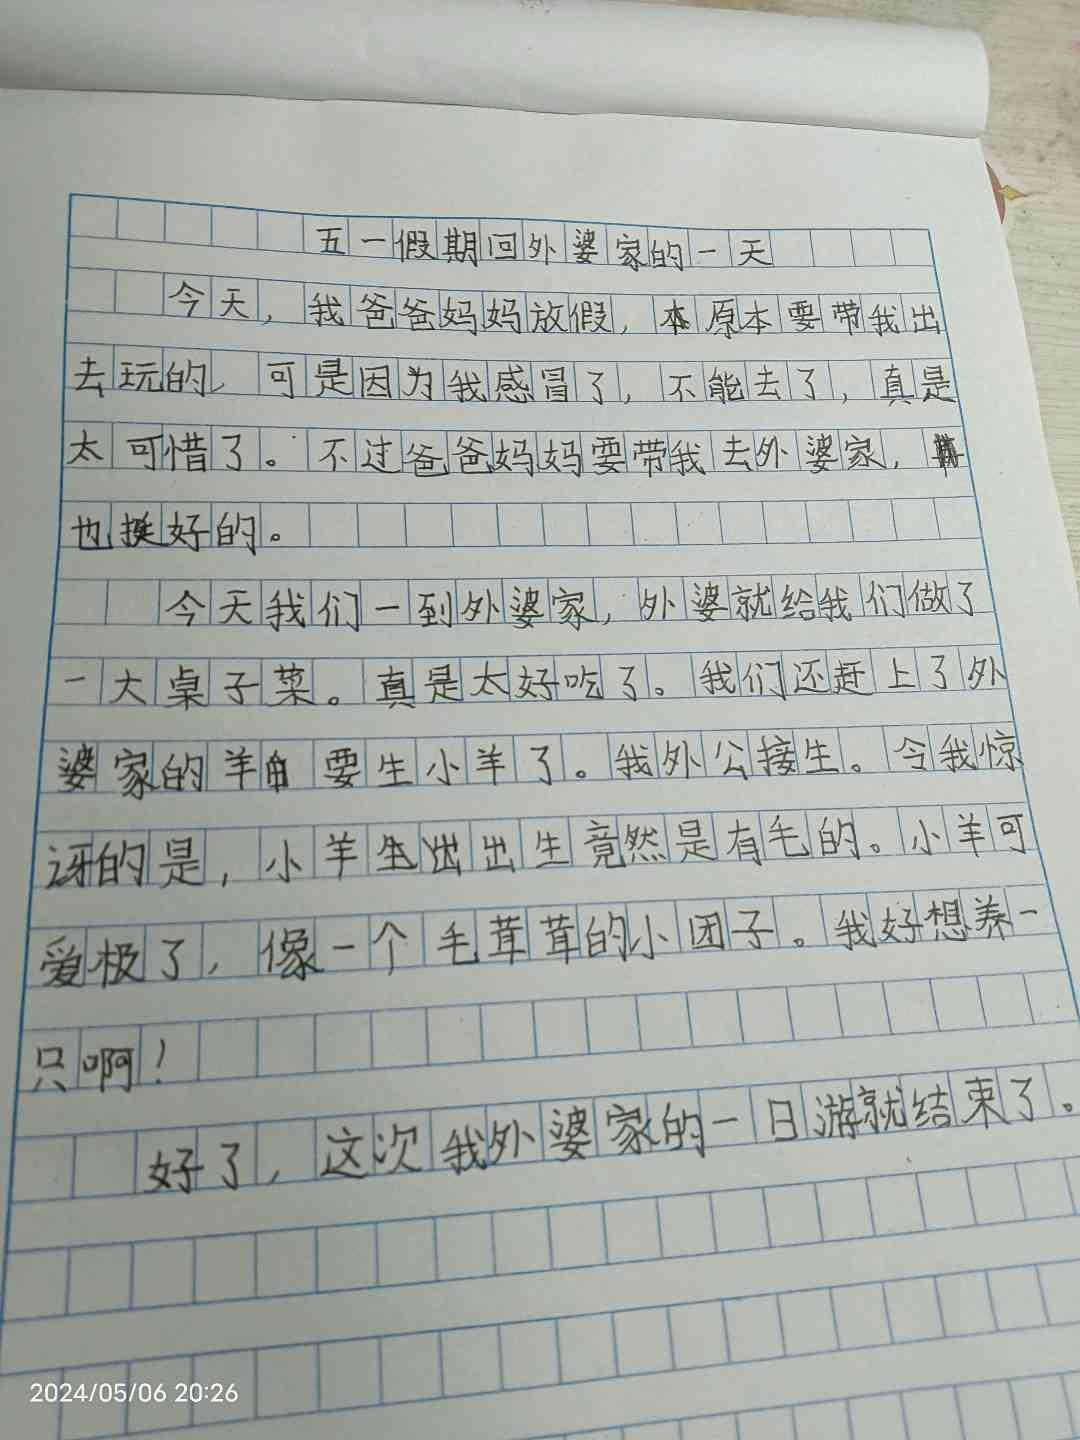 五一假期回外婆家的一天
今天，我爸爸妈妈放假，原本要带我出
去玩的，可是因为我感冒了，不能去了，真是
太可惜了。不过爸爸妈妈要带我去外婆家，
也挺好的。
今天我们一到外婆家，外婆就给我们做了
一大桌子菜。真是太好吃了。我们还赶上了外
婆家的羊要生小羊了。我外公接生。令我惊
讶的是，小羊生出出生竟然是有毛的。小羊可
爱极了，像一个毛茸茸的小团子。我好想养一
只啊！
好了，这次我外婆家的一日游就结束了。
2024/05/06 20:26